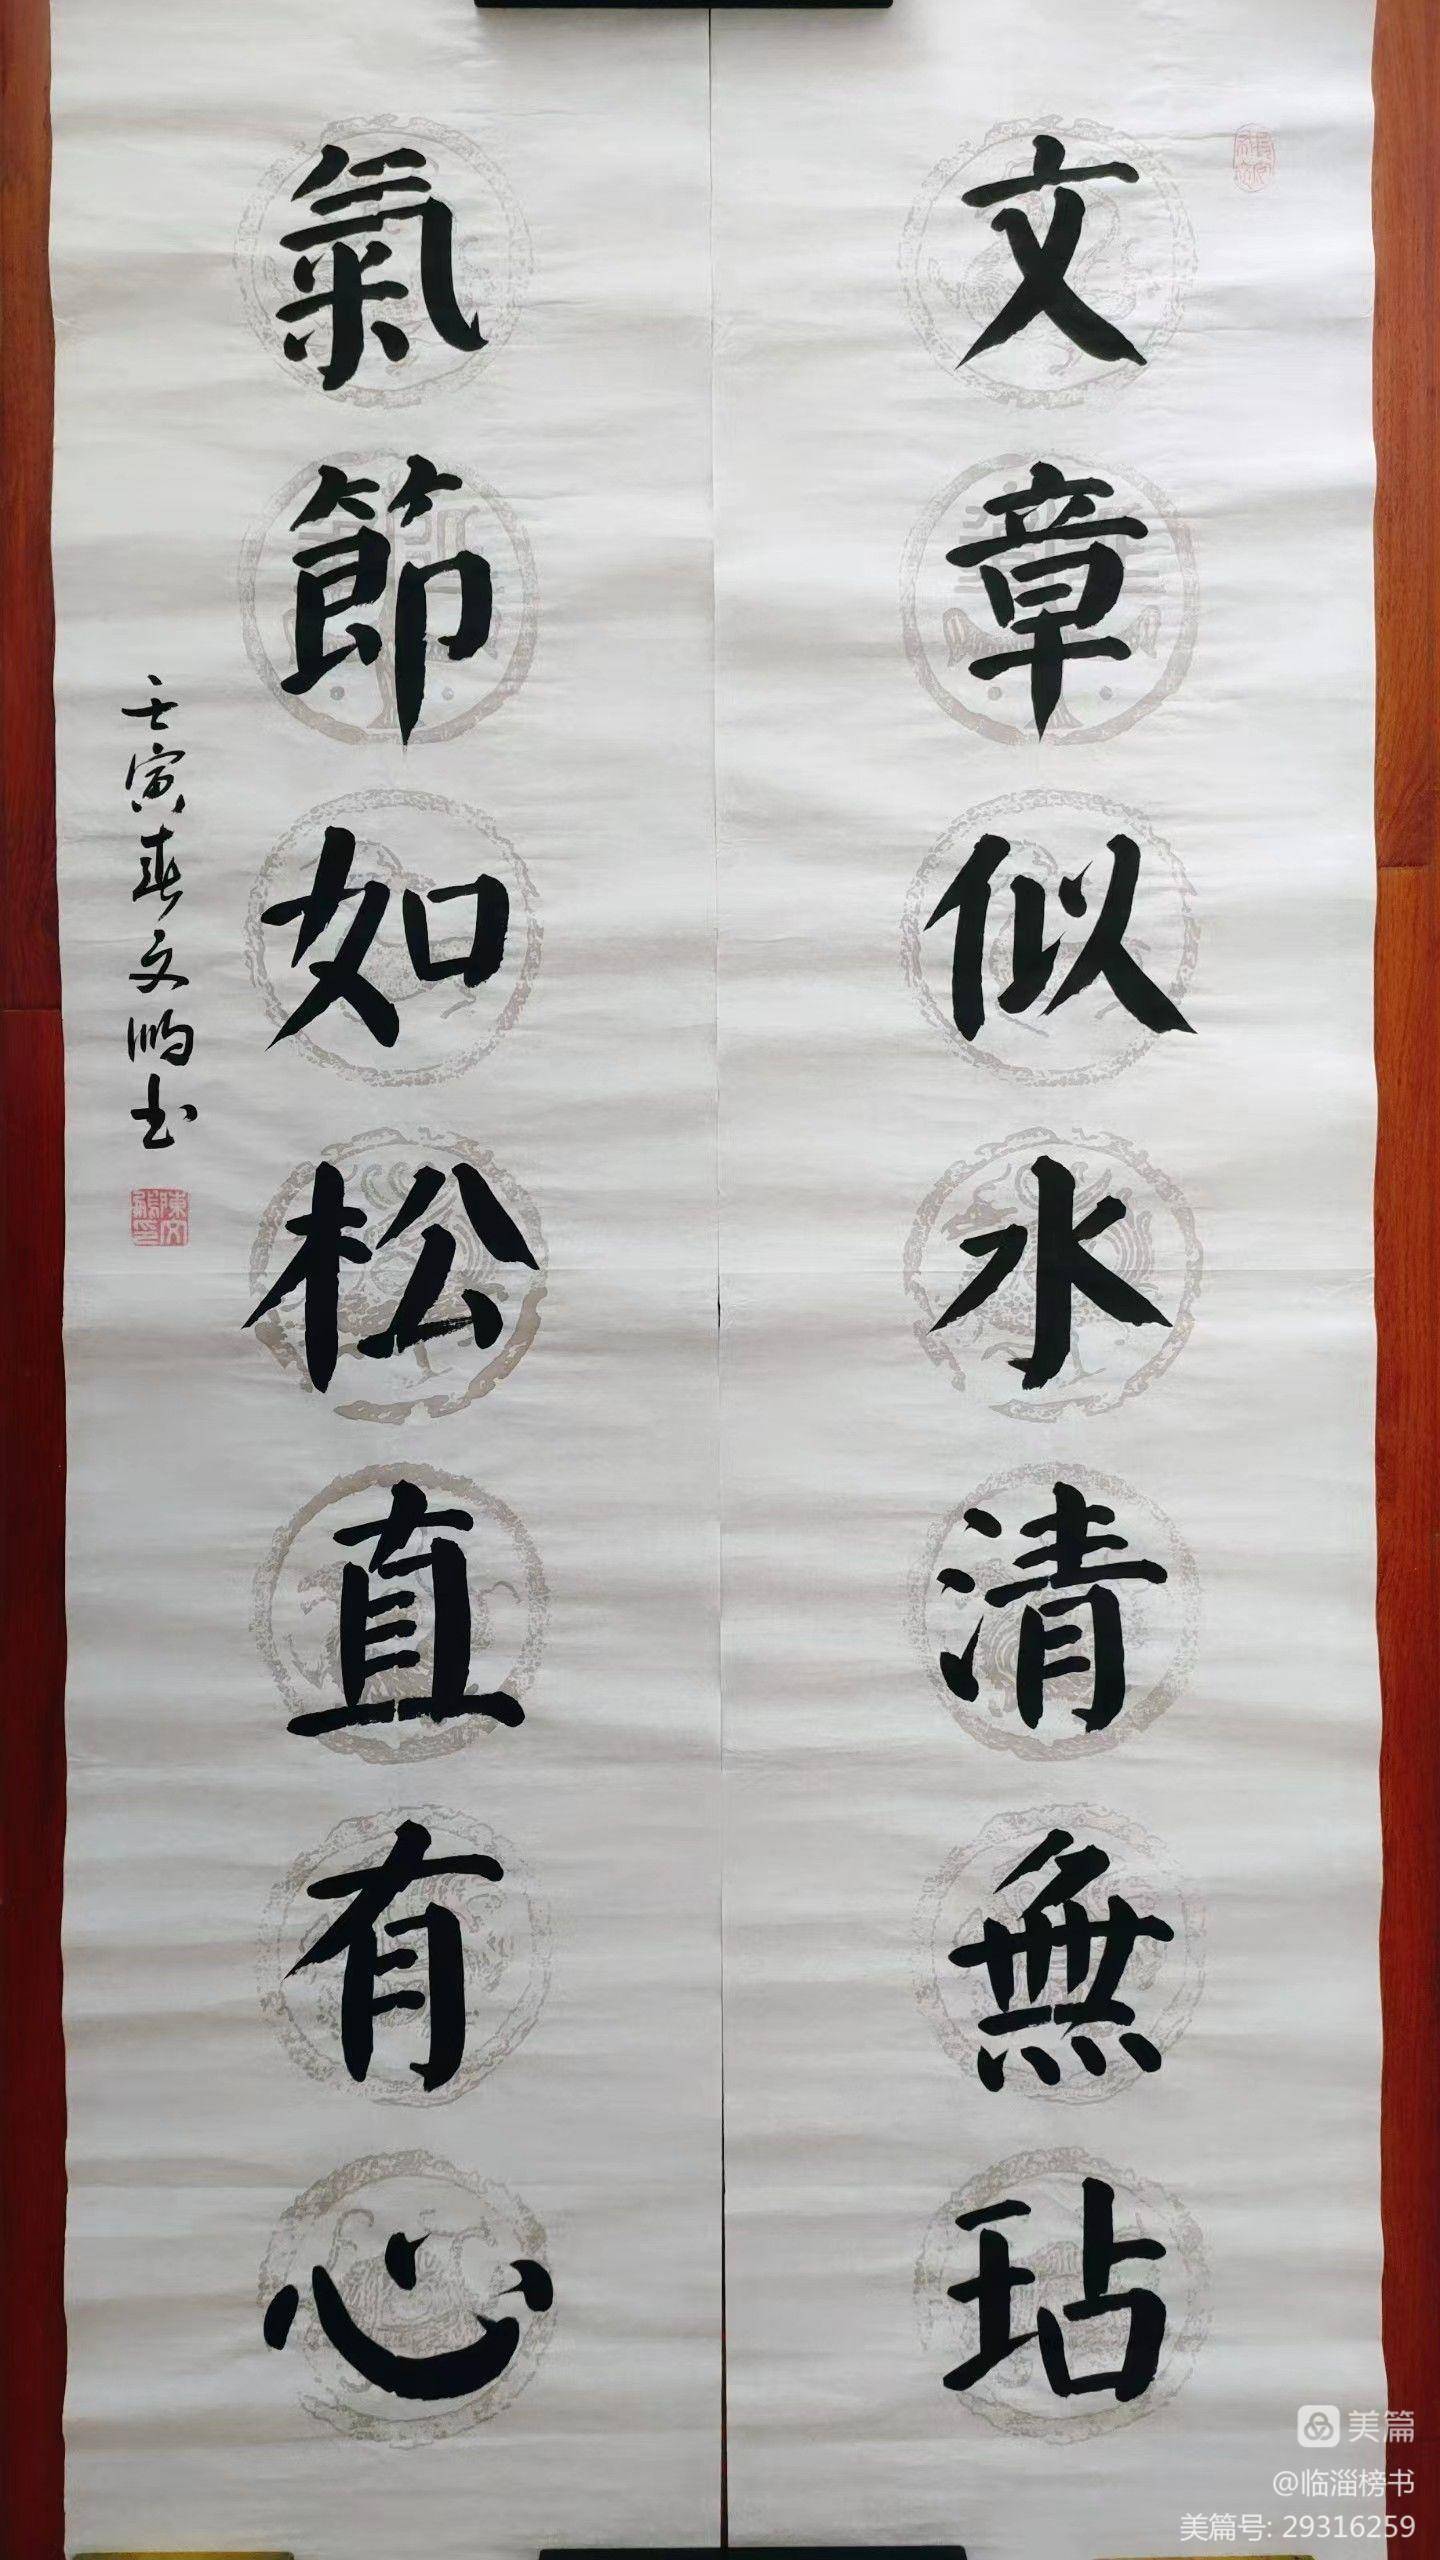 文章似水清無玷
氣節如松直有心
壬寅春文鹏书
陳文鵬印
美篇
@临淄榜书
美篇号: 29316259